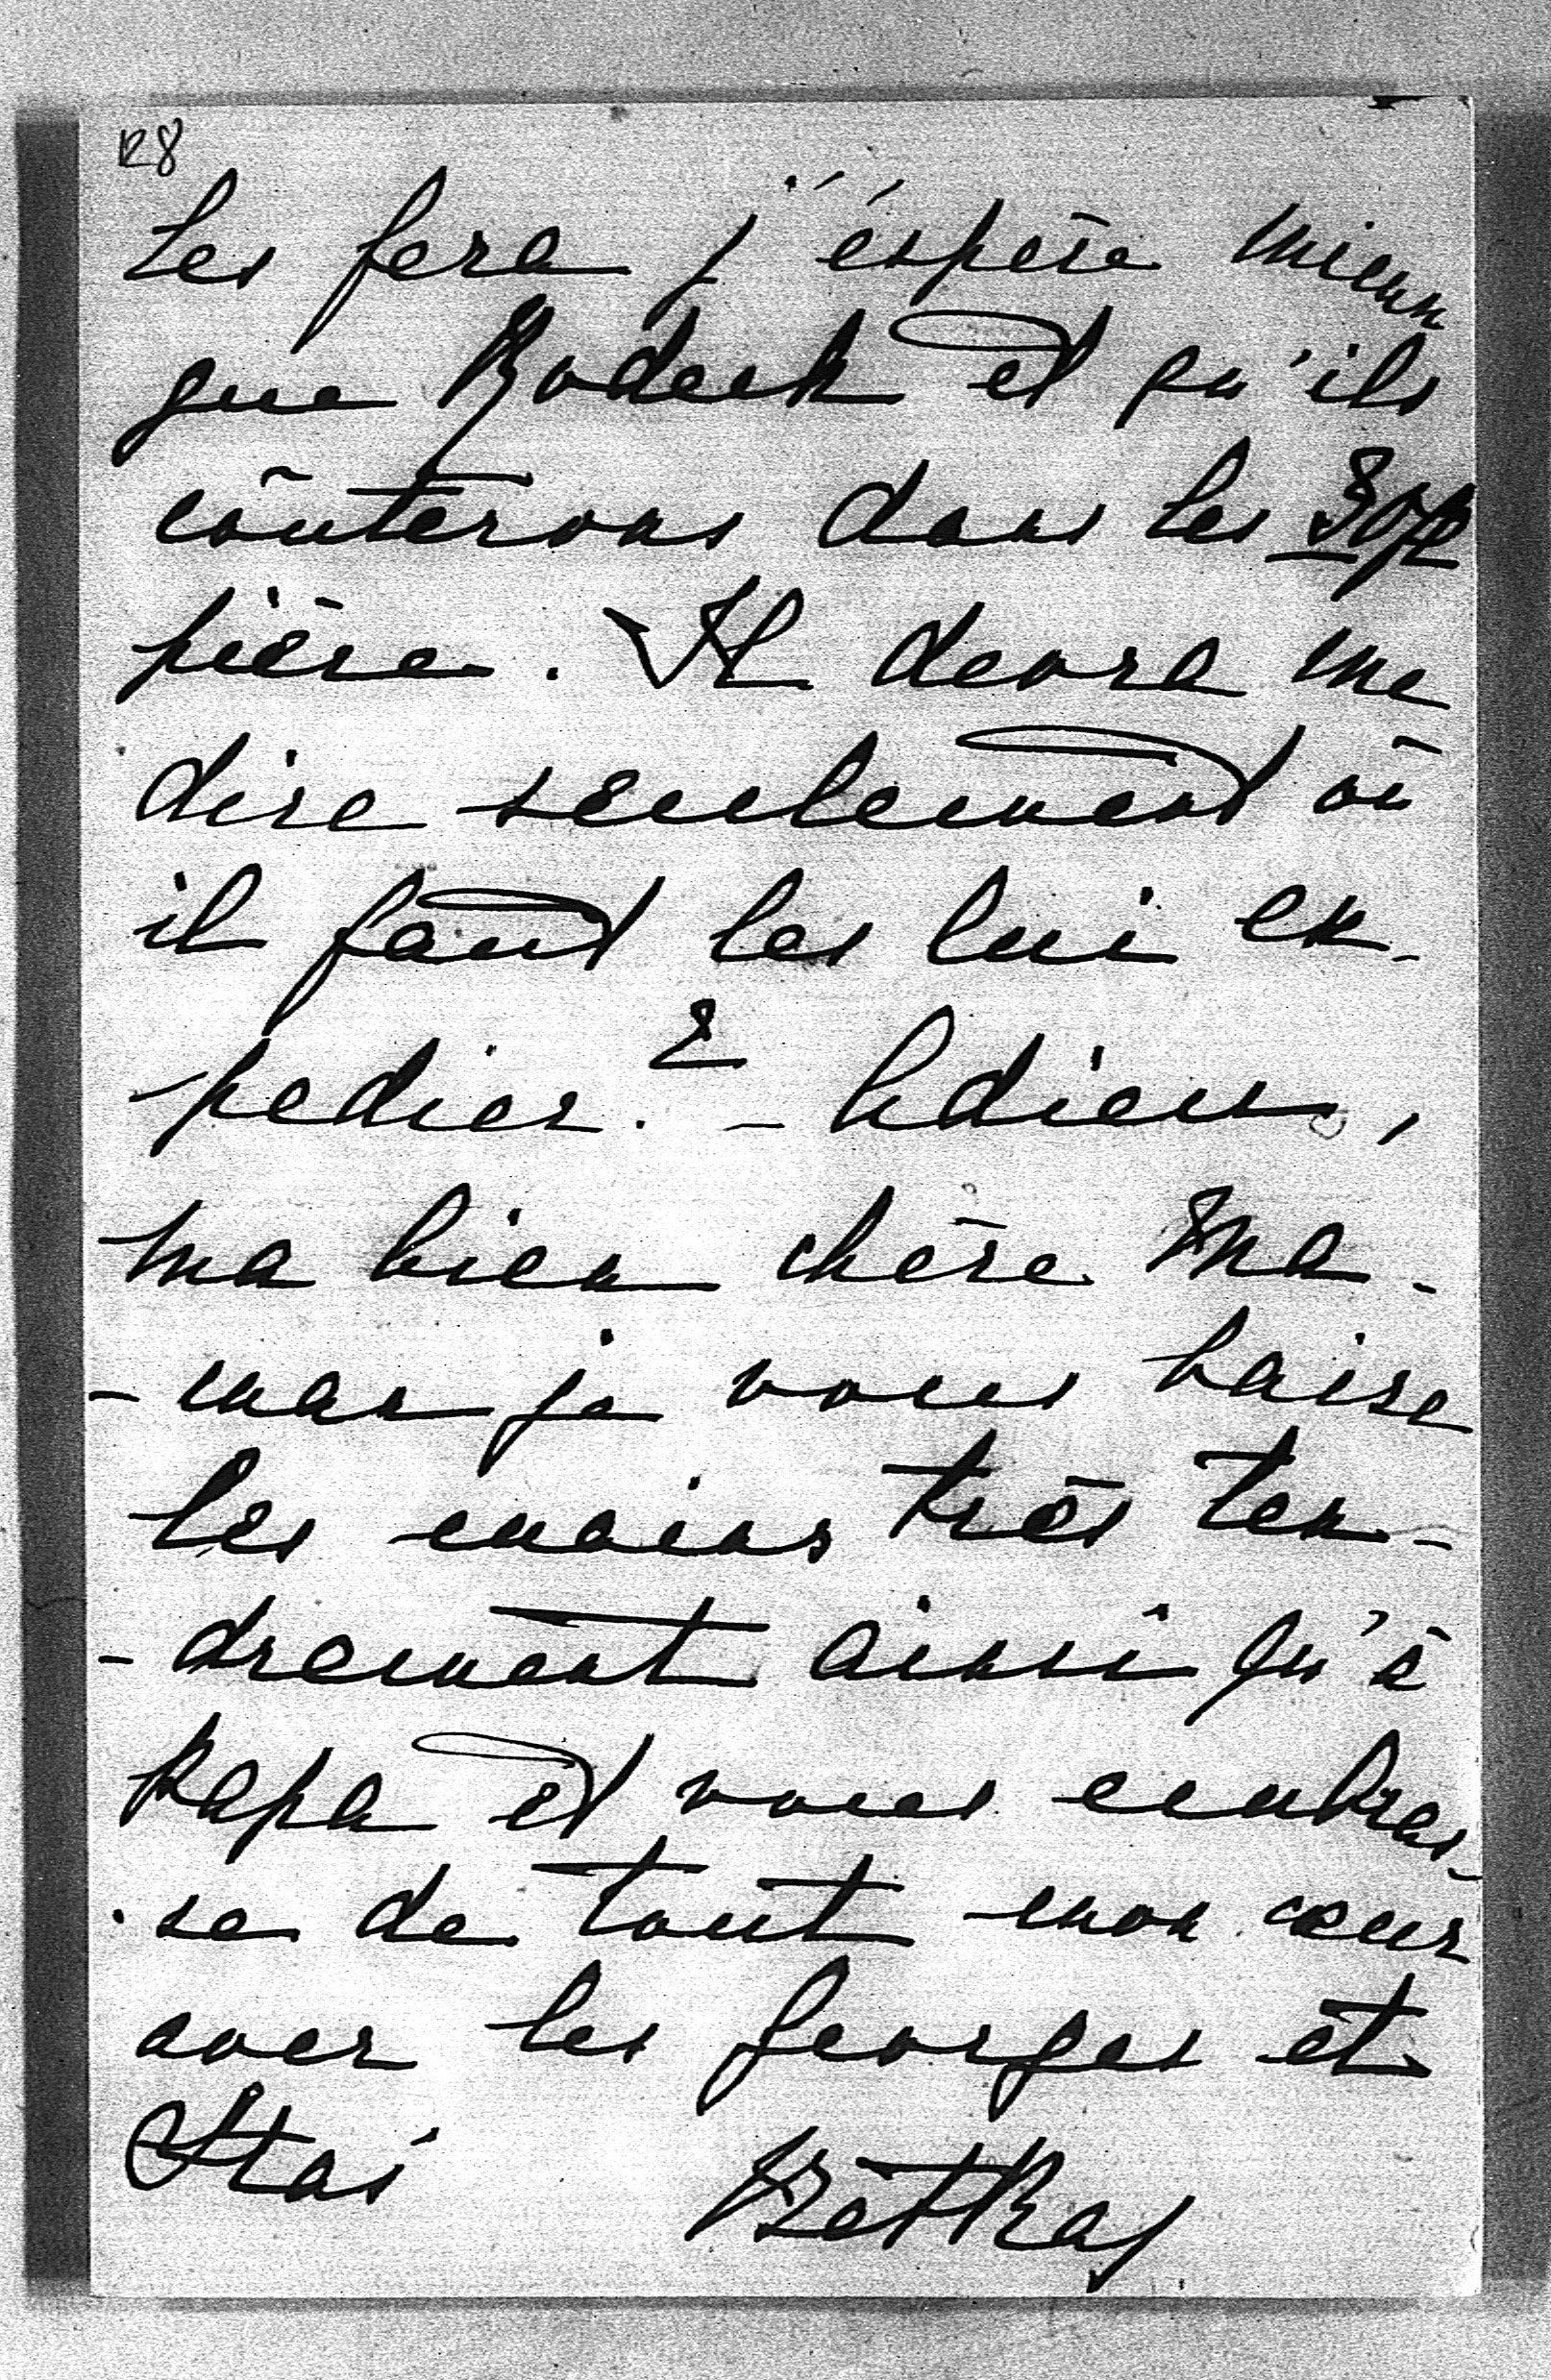 128
les fera j'éspère mieux
que Rodeck et qu'ils
coûterons dans les 30 R
pièce. Il devra me
dire seulement où
il faut les lui ex-
-pedier. 2 - Adieu,
ma bien chère Ma-
-man je vous baise
les mains très ten-
-drement ainsi qu'à
Papa et vous embras-
-se de tout mon cœur
avec les Georges et
Stas
Betka